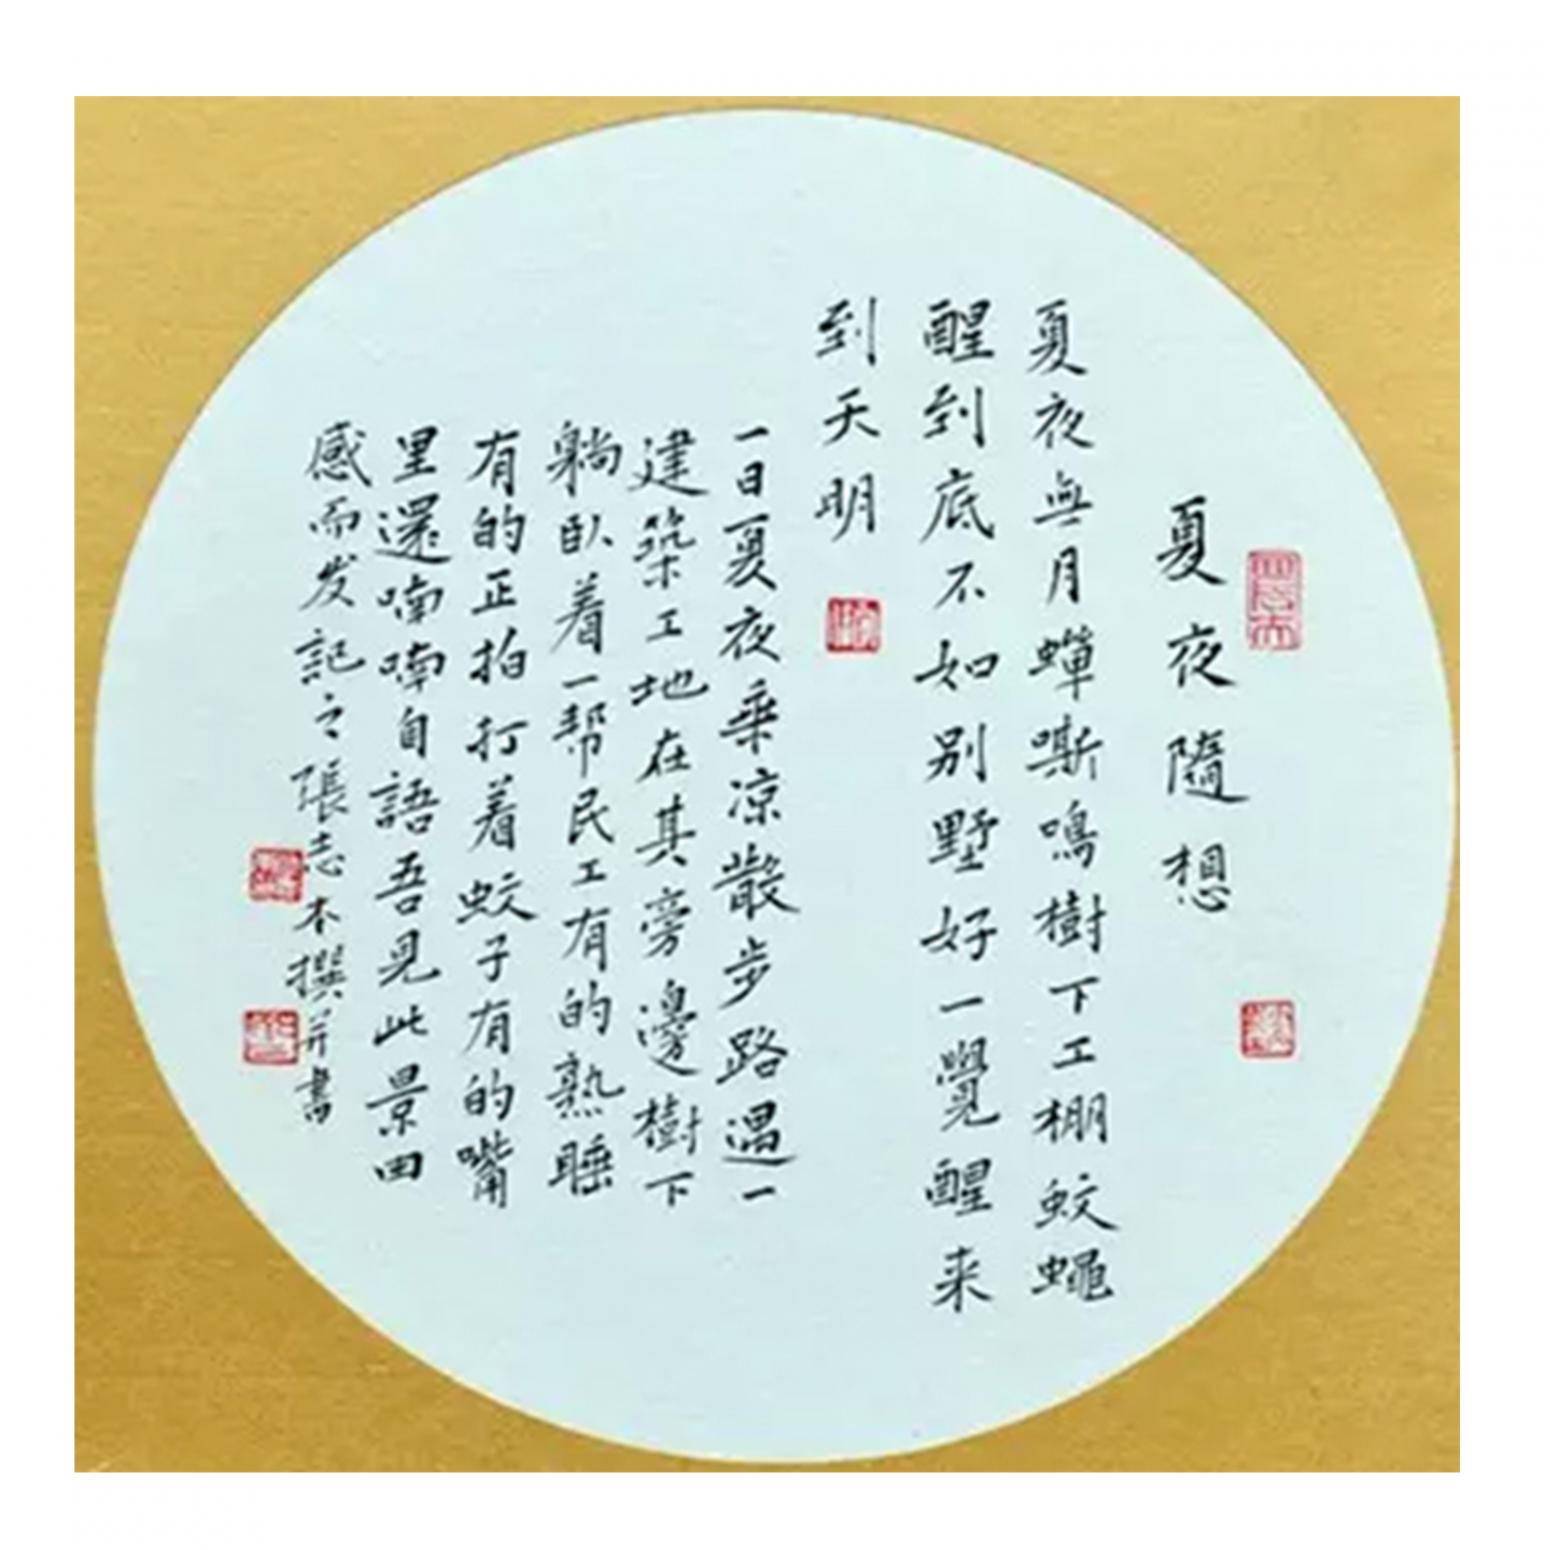 夏夜隨想
夏夜無月蟬嘶鳴樹下工棚蚊蠅
醒到底不如别墅好一覺醒来
到天明
一日夏夜乘凉散步路過一
建築工地在其旁邊樹下
躺臥着一帮民工有的熟睡
有的正拍打着蚊子有的嘴
里還喃喃自語吾見此景由
感而发記之張志本撰并書